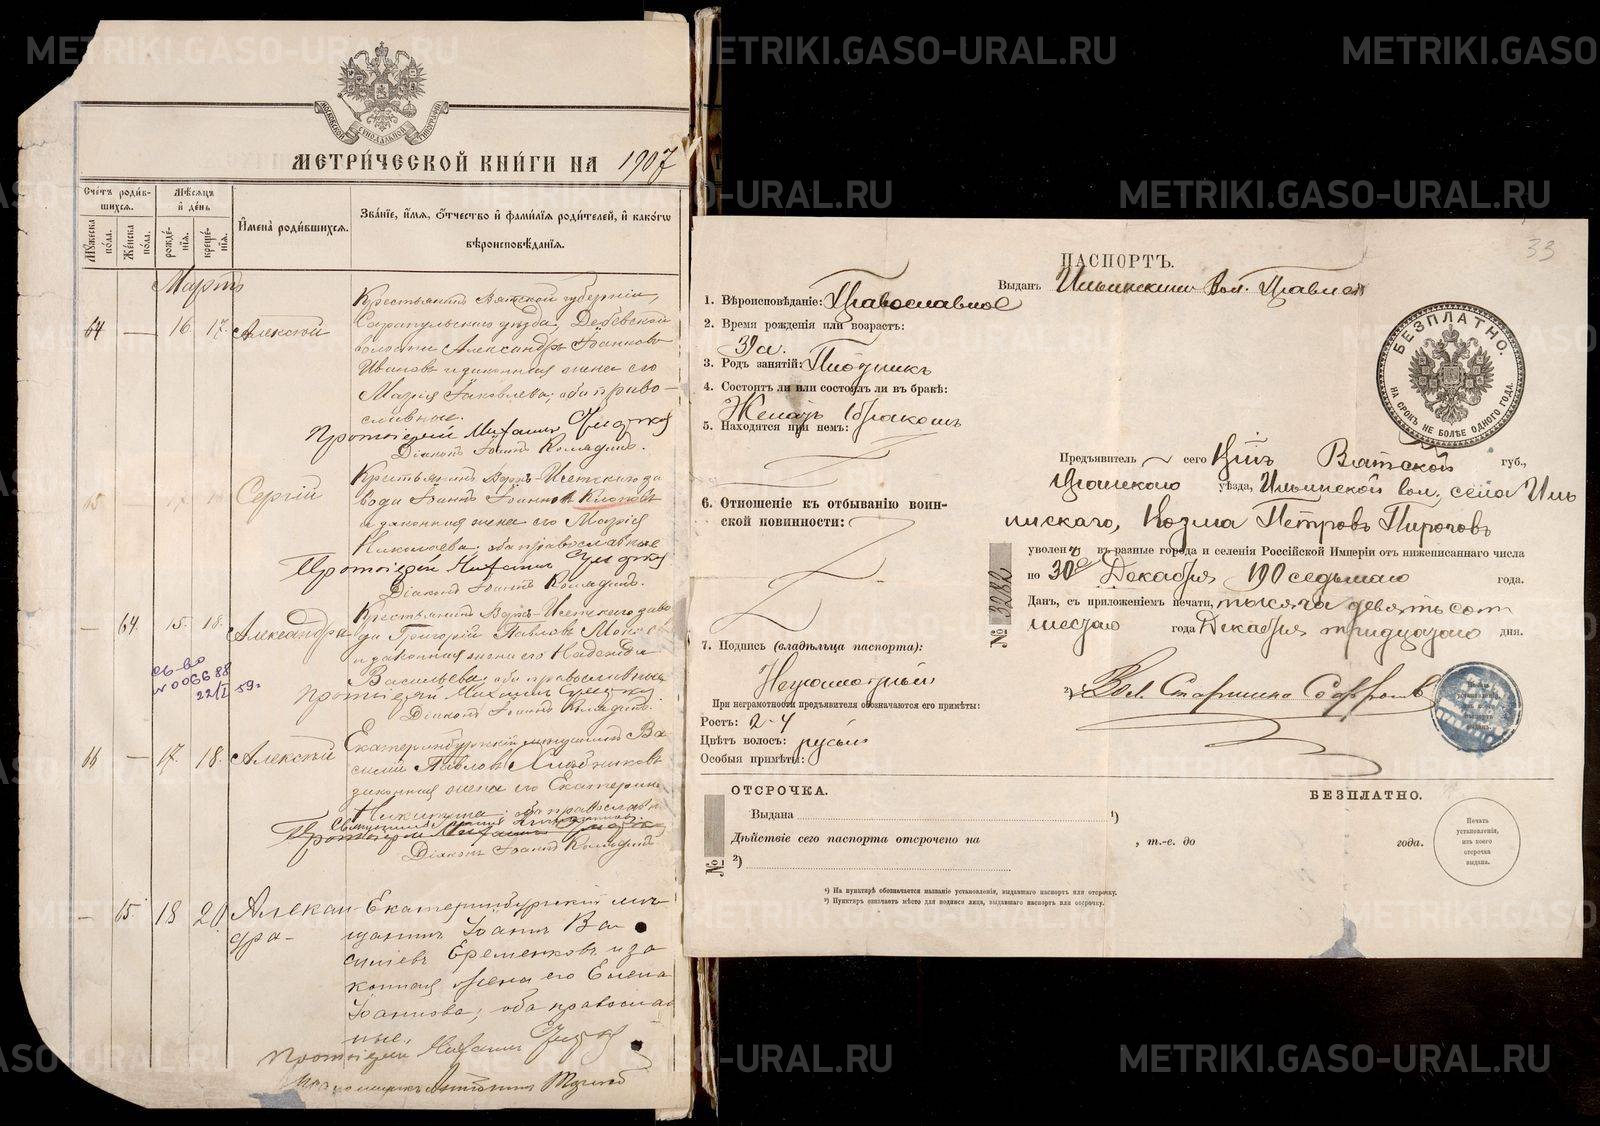 METRIKI.GASO-URAL.RU
МОСКОВСКОЙ СѴНОДАЛЬНОЙ ТИПОГРАФІИ
МЕТРИ́ЧЕСКОЙ КНИ́ГИ НА 1907
Сче́тъ роди́в-
шихся.
Му́жеска
по́ла.
Же́нска
по́ла.
Мѣ́сяцъ
и҆ де́нь
рожде́-
нїя.
креще́-
нїя.
И҆мена̀ роди́вшихся.
Зва́нїе, и҆́мя, ѻ҆́тчество и҆ фами́лїя роди́телей, и҆ како́гѡ
вѣроисповѣ́данїя.
Мартъ
64 — 16 17. Алексѣй
Крестьянинъ Вятской губерніи,
Сарапульскаго уѣзда, Дебёвской
волости Александръ Іоанновъ
Ивановъ и законная жена его
Марія Іаковлева; оба право-
славные.
Протоіерей Михаилъ
Діаконъ Іоаннъ Колядинъ.
65 — 17 18 Сергій
Крестьянинъ Верхъ-Исетскаго за
вода Іоаннъ Іоанновъ Клюковъ
и законная жена его Марія
Николаева; оба православные
Протоіерей Михаилъ
Діаконъ Іоаннъ Колядинъ.
— 64. 15. 18. Александра
Крестьянинъ Верхъ-Исетскаго заво
да Григорій Павловъ
и законная жена его Надежда
Васильева; оба православные
Протоіерей Михаилъ
Діаконъ Іоаннъ Колядинъ.
св-во
№006688
22/I 59г
66 — 17. 18. Алексѣй
Екатеринбургскій мѣщанинъ Ва
силій Павловъ Хлѣбниковъ
законная жена его Екатерина
Никитина; оба православн
Священникъ
Протоіерей Михаилъ
Діаконъ Іоаннъ Колядинъ
— 65. 18 20 Алексан
дра-
Екатеринбургскій мѣ
щанинъ Іоаннъ Ва
сильевъ Еременковъ и за
конная жена его Елена
Іоаннова; оба православ
ные.
Протоіерей Михаилъ
Псаломщикъ
33
ПАСПОРТЪ.
Выданъ Ильинскимъ Вол. Правлен
1. Вѣроисповѣданіе: Православное
2. Время рожденія или возрастъ:
39 л.
3. Родъ занятій: Плотникъ
4. Состоитъ ли или состоялъ ли въ бракѣ:
Женатъ бракомъ
5. Находятся при немъ:
6. Отношеніе къ отбыванію воин-
ской повинности:
7. Подпись (владѣльца паспорта):
Неграмотный
При неграмотности предъявителя обозначаются его примѣты:
Ростъ: 2-4
Цвѣтъ волосъ: русые
Особыя примѣты:
БЕЗПЛАТНО.
НА СРОКЪ НЕ БОЛѢЕ ОДНОГО ГОДА.
Предъявитель сего Вятской губ.,
уѣзда, Ильинской вол. села Иль
инскаго, Козма Петровъ Пироговъ
уволенъ въ разные города и селенія Россійской Имперіи отъ нижеписаннаго числа
по 30е Декабря 190седьмаго года.
Данъ, съ приложеніемъ печати, тысяча девятьсот
шестаго года Декабря тридцатаго дня.
№ 3282
²) Вол. Старшина
ОТСРОЧКА.
БЕЗПЛАТНО.
Выдана ¹)
Дѣйствіе сего паспорта отсрочено на , т.-е. до года.
№
²)
Печать
установленія,
изъ коего
отсрочка
выдана.
¹) На пунктирѣ обозначается названіе установленія, выдавшаго паспортъ или отсрочку.
²) Пунктиръ означаетъ мѣсто для подписи лица, выдавшаго паспортъ или отсрочку.